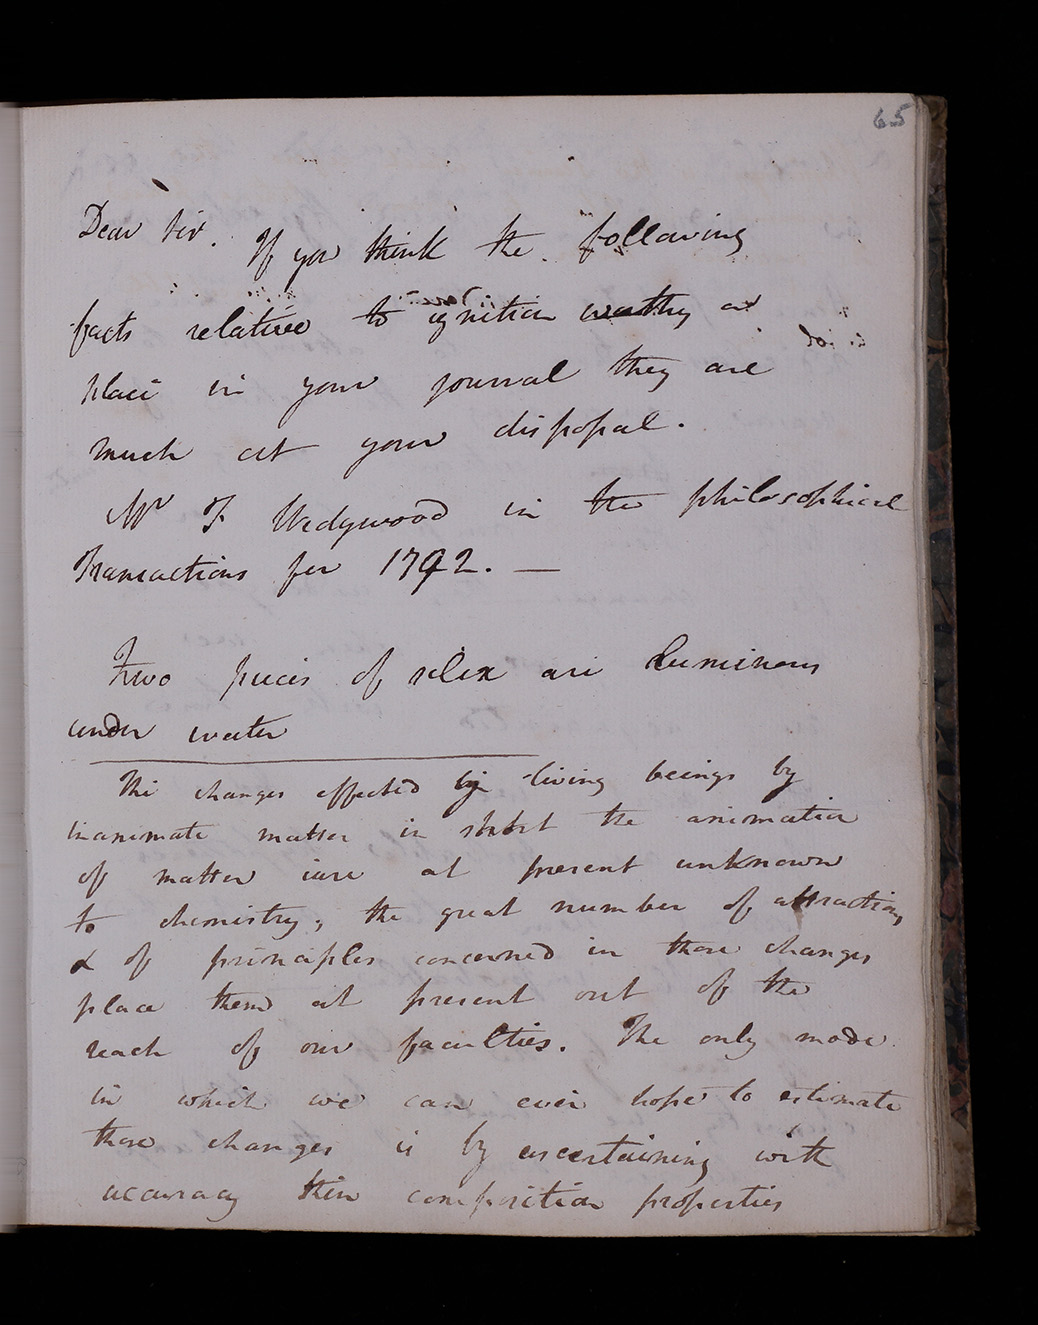 65
Dear Sir. If you think the following
facts relative to ignition worthy a
place in your journal they are
much at your disposal.
Mr T. Wedgwood in the philosophical
Transactions for 1792. —
Two pieces of silex are luminous
under water
The changes effected by living beings by
inanimate matter in the animation
of matter are at present unknown
to chemistry, the great number of attractions
& of principles concerned in those changes
place them at present out of the
reach of our faculties. The only mode
in which we can ever hope to estimate
those changes is by ascertaining with
accuracy their composition properties